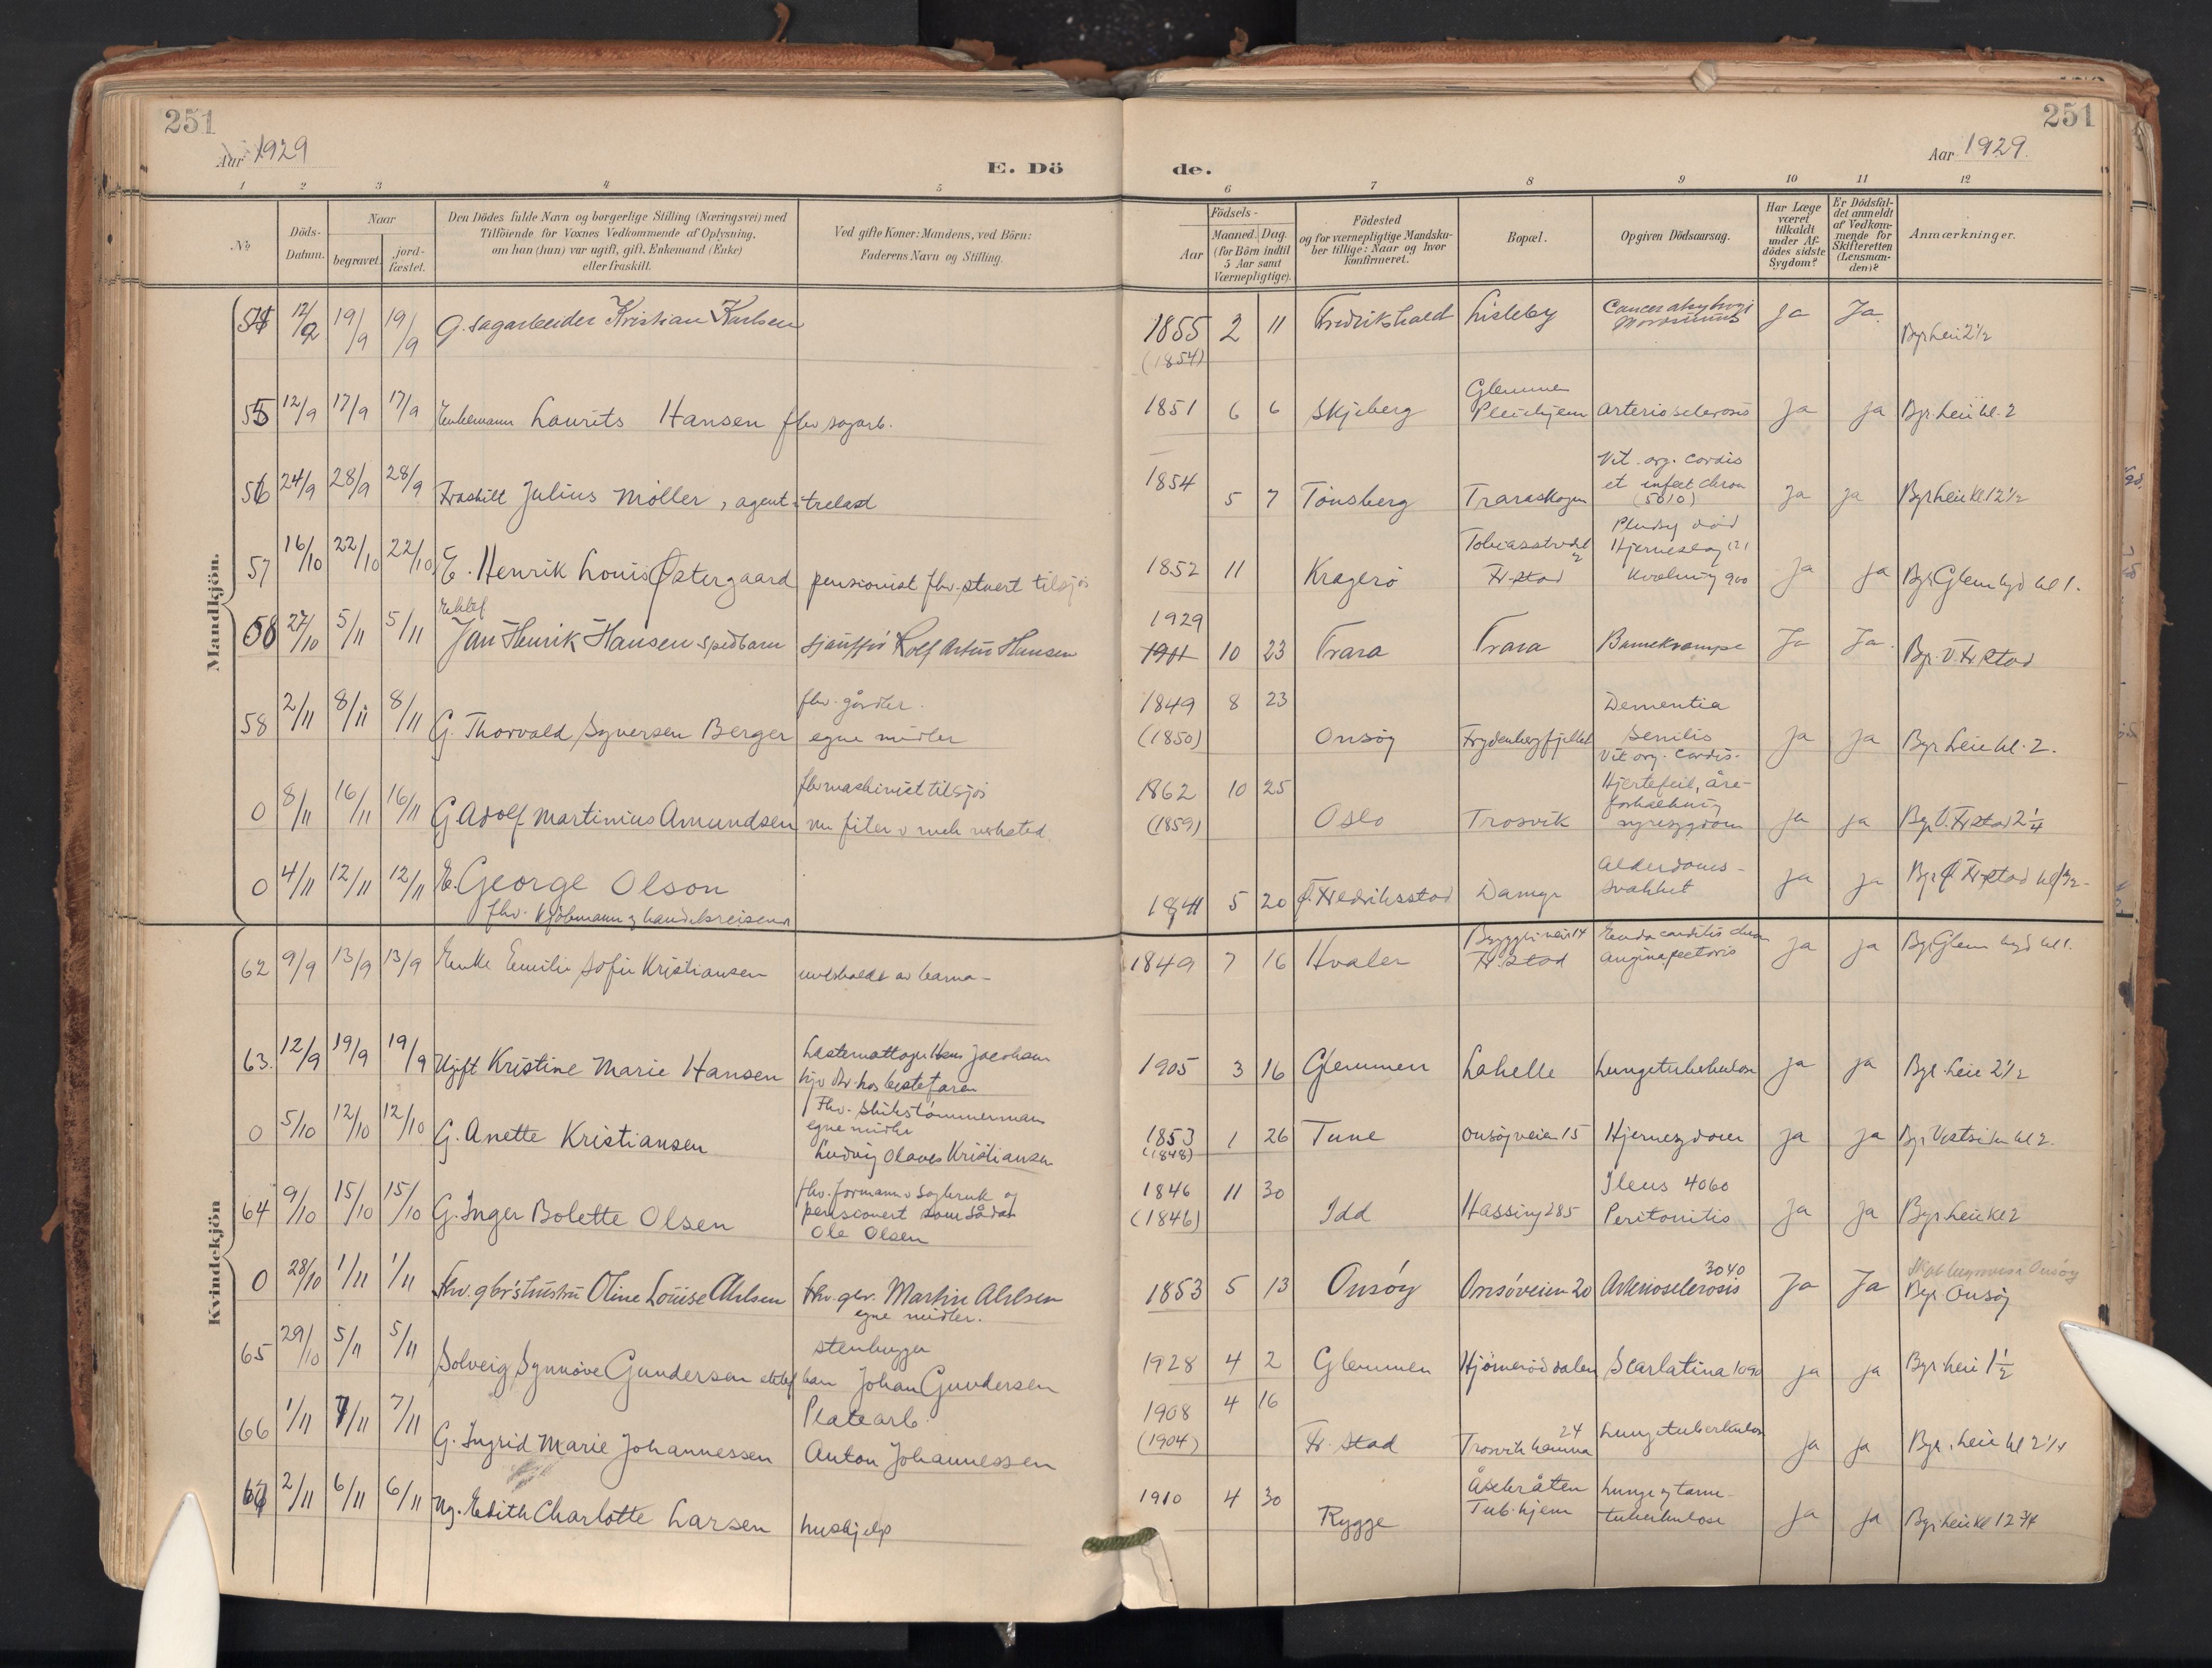 251
Aar 1929
E. Dö
1 2 3 4 5
No
Döds-
Datum.
Naar
begravet.
jord-
fæstet.
Den Dödes fulde Navn og borgerlige Stilling (Næringsvei) med
Tilföiende for Voxnes Vedkommende af Oplysning,
om han (hun) var ugift, gift, Enkemand (Enke)
eller fraskilt.
Ved gifte Koner: Mandens, ved Börn:
Faderens Navn og Stilling.
251
Aar 1929.
de.
6 7 8 9 10 11 12
Födsels-
Aar
Maaned. Dag.
(for Börn indtil
5 Aar samt
Værnepligtige).
Födested
og for værnepligtige Mandska-
ber tillige: Naar og hvor
konfirmeret.
Bopæl.
Opgiven Dödsaarsag.
Har Læge
været
tilkaldt
under Af-
dödes sidste
Sygdom?
Er Dödsfal-
det anmeldt
af Vedkom-
mende for
Skifteretten
(Lensman-
den)?
Anmærkninger.
Mandkjön.
54 12/9 19/9 19/9 G. sagarbeider Kristian Karlsen 1855 2 11 Fredrikshald Lisleby Cancer Ja Ja.
(1854) Byr Leie 2 1/2
55 12/9 17/9 17/9 Enkemann Laurits Hansen fhv sagarb. 1851 6 6 Skjeberg Glemmen
Pleiehjem Arteriosclerosis Ja Ja Byr. Leie kl. 2
56 24/9 28/9 28/9 Fraskilt Julius Møller, agent i trelast 1854 5 7 Tönsberg Traraskogen Vit. org. cordis
et infect chron
(5010) Ja Ja Byr Leie kl 12 1/2
57 16/10 22/10 22/10 E. Henrik Louis Østergaard pensionist fhv. stuert tilsjös 1852 11 Kragerö
Fr.stad Hjerneslag
900 Ja Ja Byr Glem kl 1.
58 27/10 5/11 5/11 Ektef
Jan Henrik Hansen spedbarn sjauffør Rolf Artur Hansen 1929
1911 10 23 Trara Trara Barnekrampe Ja Ja. Byr. V. Fr.stad
58 2/11 8/11 8/11 G. Thorvald Syversen Berger fhv. gårdbr.
egne midler 1849 8 23
(1850) Onsöy Frydenbergfjellet Dementia
Senilis
Vit org. cordis. Ja Ja Byr Leie kl. 2.
0 8/11 16/11 16/11 G Adolf Martinius Amundsen fhv maskinist tilsjös
nu filer v mek verksted 1862 10 25
(1859) Oslo Trosvik Hjertefeil, åre-
forkalkning
nyresygdom Ja Ja Byr V. Fr.stad 2 1/4
0 4/11 12/11 12/11 E. George Olson
fhv. kjöbmann og handelsreisende 1841 5 20 Ø. Fredriksstad Damyr Alderdoms-
svakhet Ja Ja Byr Ø Fr.stad
Kvindekjön
62 9/9 13/9 13/9 Enke Emilie Sofie Kristiansen underholdt av barna- 1849 7 16 Hvaler
Fr.stad
angina pectoris Ja Ja Byr Glem kl 1.
63. 12/9 19/9 19/9 Ugift Kristine Marie Hansen Hans Jacobsen
hos bestefaren 1905 3 16 Glemmen Lahelle Lungetuberkulose Ja Ja Byr. Leie 2 1/2
0 5/10 12/10 12/10 G. Anette Kristiansen Fhv. skibstömmermann
egne midler
Ludvig Olaves Kristiansen 1853 1 26
(1848) Tune Onsöyveien 15 Hjernesygdom Ja Ja Byr Vestsiden kl 2.
64 9/10 15/10 15/10 G. Inger Bolette Olsen fhv. formann v sagbruk og
pensionert som sådan
Ole Olsen 1846 11 30
(1846) Idd Hassing 285 Ileus 4060
Peritonitis Ja Ja Byr Leie kl 2
0 28/10 1/11 1/11 Fhv. gbr's hustru Oline Louise Ahlsen Fhv. gbr. Martin Ahlsen
egne midler. 1853 5 13 Onsöy Onsöveien 20 3040
Arteriosclerosis Ja Ja Onsöy
Byr. Onsöy
65 29/10 5/11 5/11 Solveig Synnöve Gundersen ektef barn stenhugger
Johan Gundersen 1928 4 2 Glemmen Hjörneröddalen Scarlatina 1090 Ja Ja Byr. Leie 1 1/2
66 1/11 7/11 7/11 G. Ingrid Marie Johannessen Platearb.
Anton Johannessen 1908 4 16
(1904) Fr. stad 24
Trosvikhavna Lungetuberkulose Ja Ja Byr. Leie kl 2 1/4
67 2/11 6/11 6/11 Ug. Edith Charlotte Larsen hushjelp 1910 4 30 Rygge Åsebråten
Tub. hjem Lunge og tarm-
tuberkulose Ja Ja Byr Leie kl 12 3/4